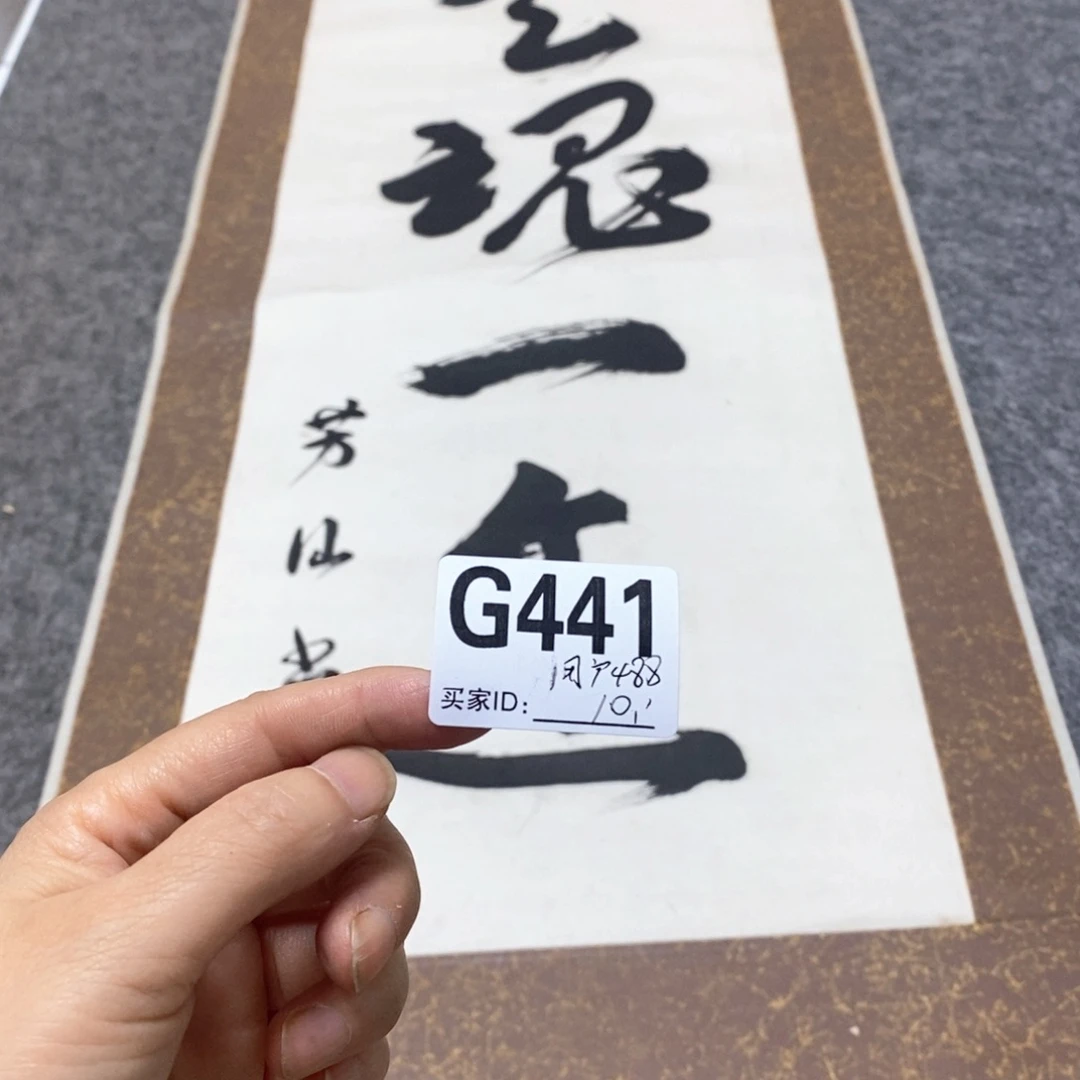 魂
一
生
芳
仙
G441
用户488
买家ID: 10,